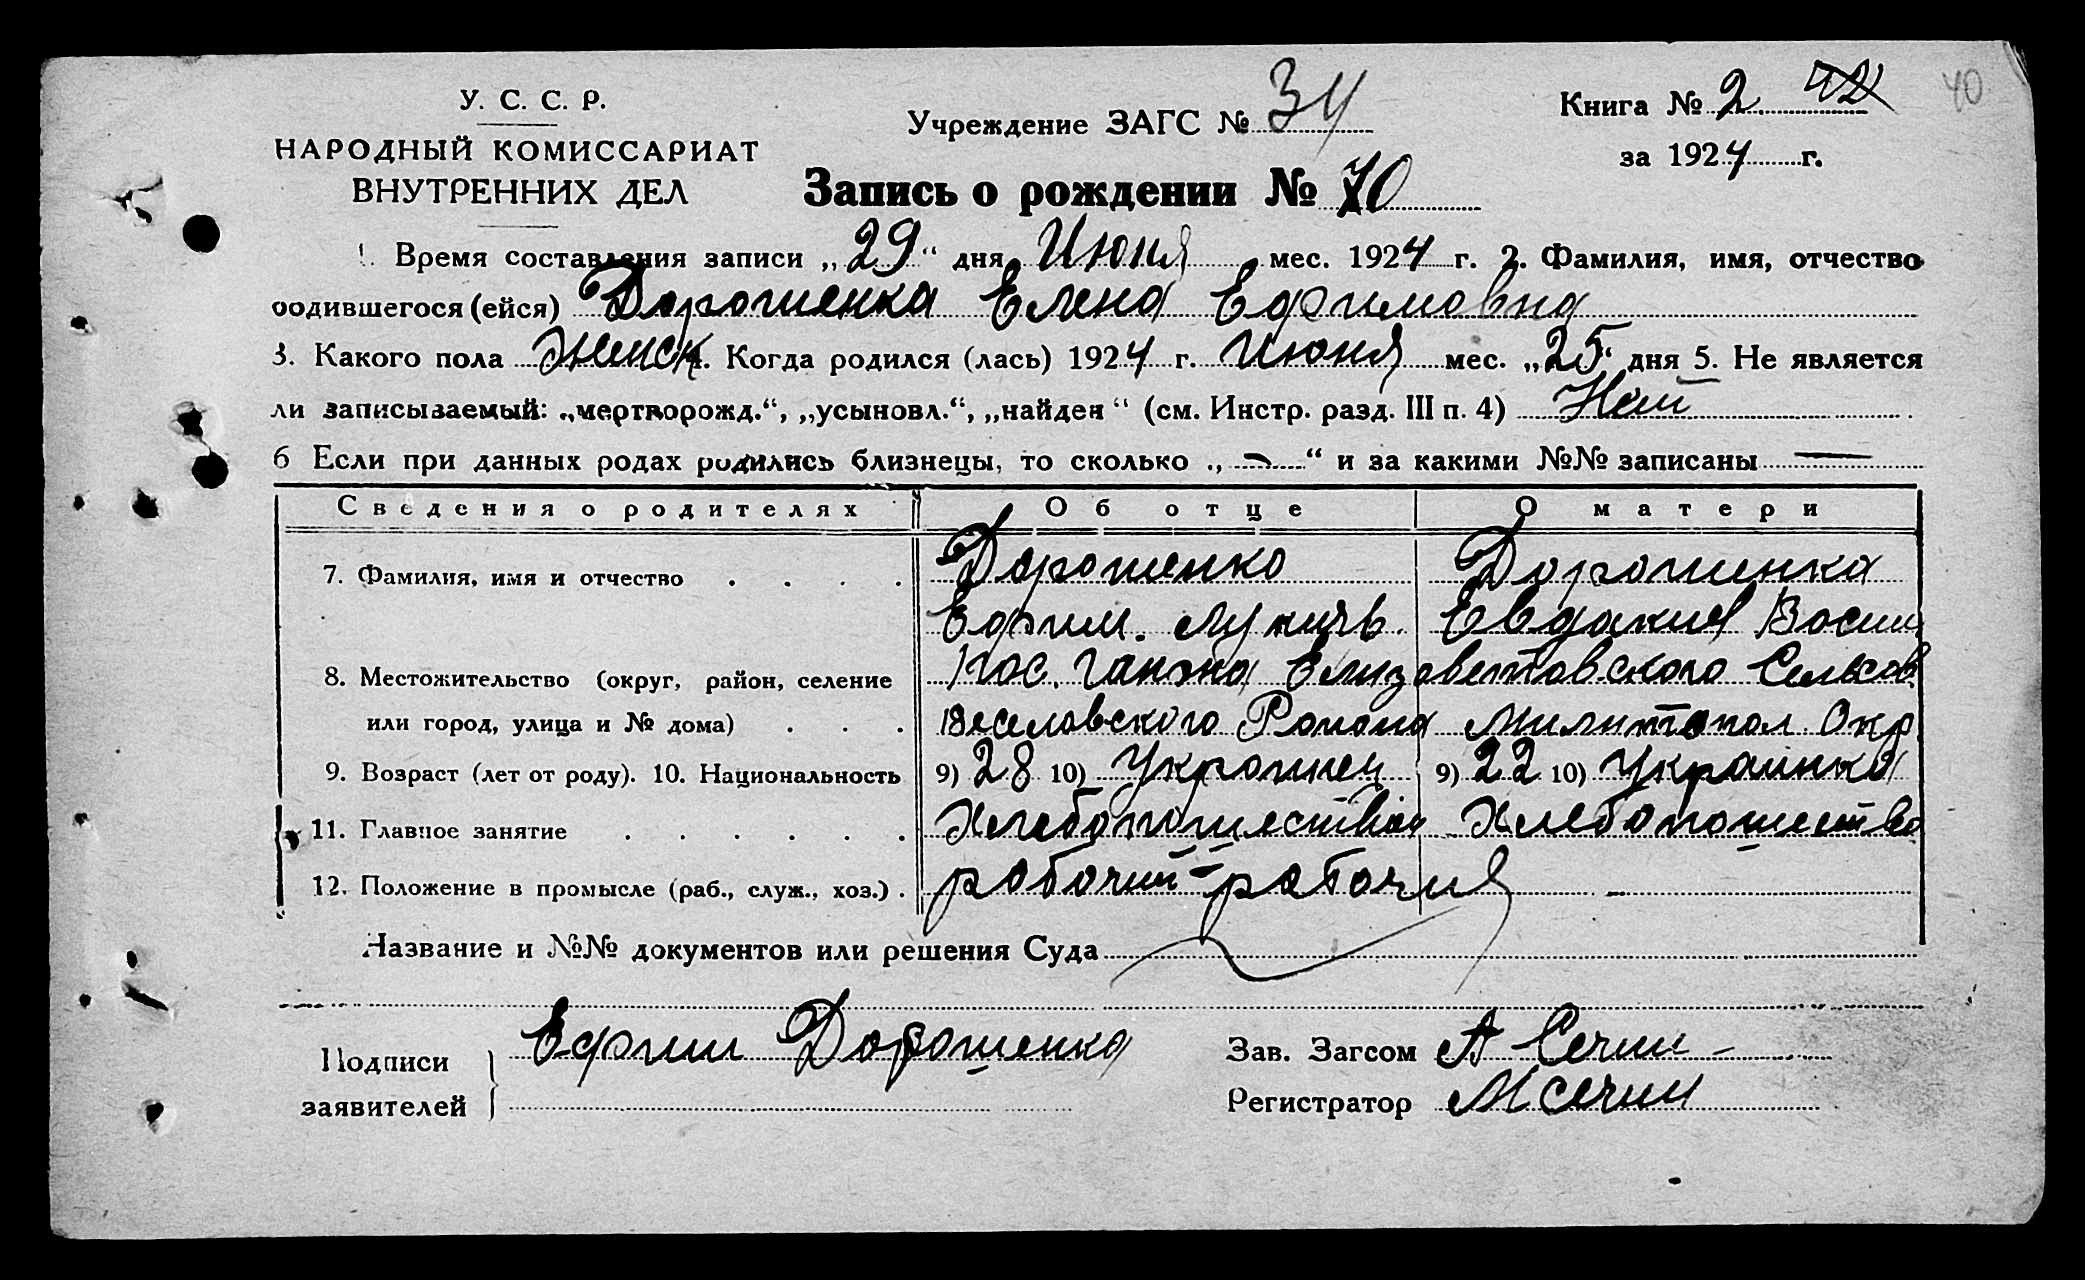 У. С. С. Р.
НАРОДНЫЙ КОМИССАРИАТ
ВНУТРЕННИХ ДЕЛ
Учреждение ЗАГС № 34
Книга № 2 42 40
за 1924 г.
Запись о рождении № 70
1. Время составления записи „29“ дня Июня мес. 1924 г. 2. Фамилия, имя, отчество
родившегося (ейся) Дорошенка Елена Ефимовна
3. Какого пола Женск 4. Когда родился (лась) 1924 г. Июня мес. „25“ дня 5. Не является
ли записываемый: „мертворожд.“, „усыновл.“, „найден“ (см. Инстр. разд. III п. 4) Нет
6 Если при данных родах родились близнецы, то сколько „—“ и за какими №№ записаны —
Сведения о родителях Об отце О матери
7. Фамилия, имя и отчество Дорошенко Дорошенка
Ефим. Лукичь. Евдакия Васил
8. Местожительство (округ, район, селение Пос. Елизаветовского Сельсов
или город, улица и № дома) Веселовского Рапона Милитопол. Окр
9. Возраст (лет от роду). 10. Национальность 9) 28 10) Украинец 9) 22 10) Украинка
11. Главное занятие Хлебопошество Хлебопошество
12. Положение в промысле (раб., служ., хоз.) рабочий - рабочия
Название и №№ документов или решения Суда
Подписи Ефим Дорошенка
заявителей
Зав. Загсом А Сечин
Регистратор М Сечин